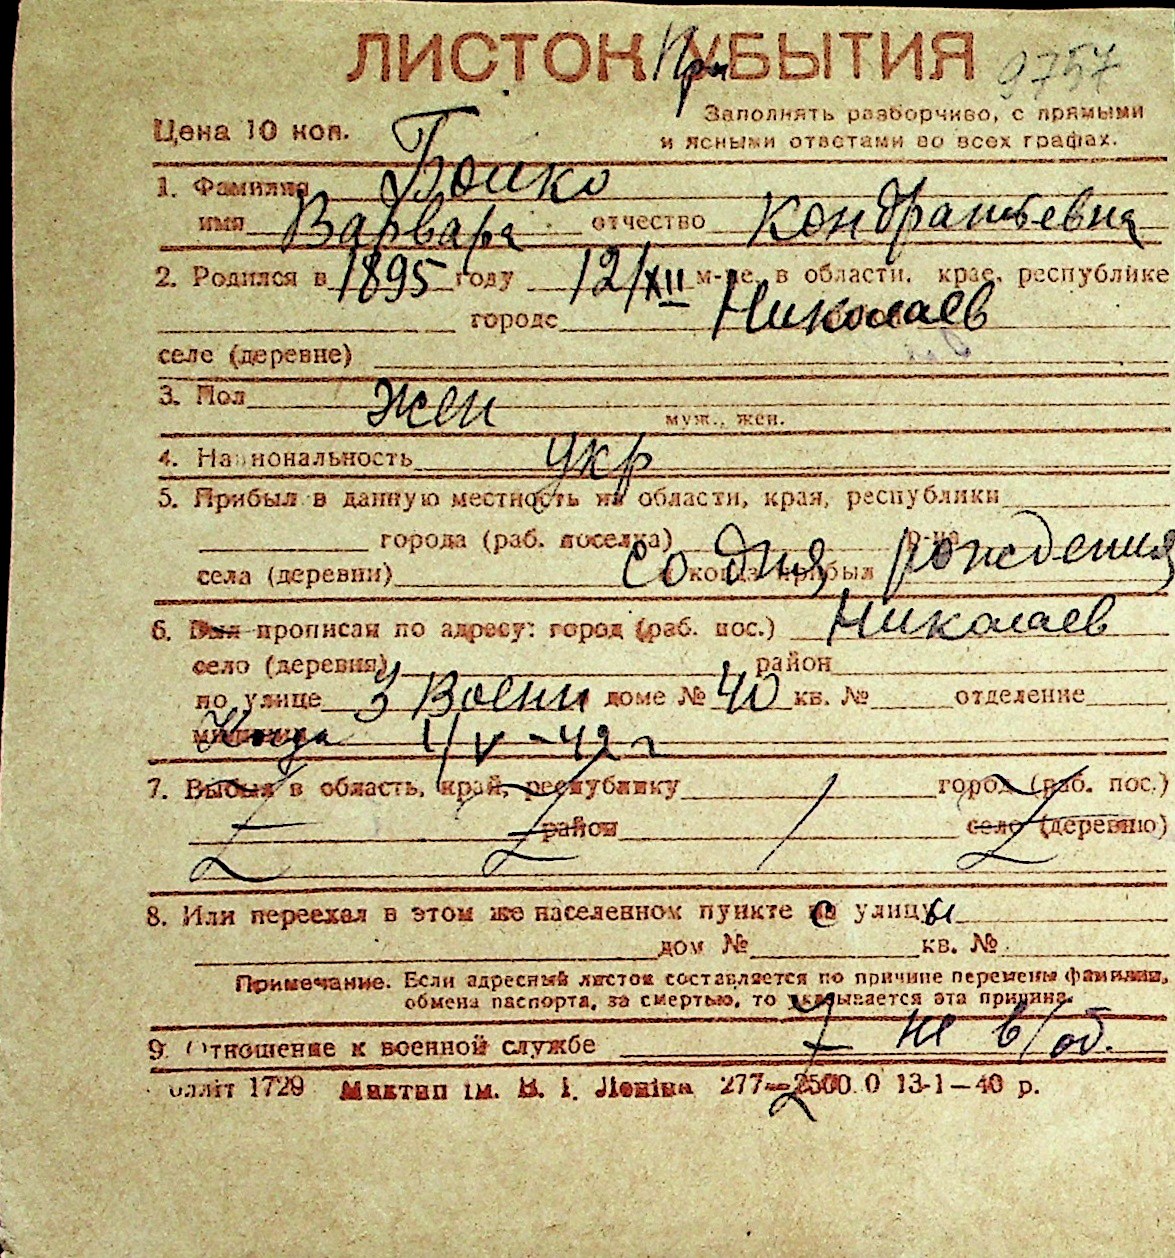 ЛИСТОК При УБЫТИЯ 9757
Цена 10 коп.
Заполнять разборчиво, с прямыми
и ясными ответами во всех графах.
1. Фамилия Бойко
имя Варвара отчество Кондратьевна
2. Родился в 1895 году 12/XII м-це, в области, крае, республике
городе Николаев
селе (деревне)
3. Пол жен
муж., жен.
4. Национальность укр
5. Прибыл в данную местность из области, края, республики
города (раб. поселка) р-на
села (деревни) и когда прибыл со дня рождения
6. Был прописан по адресу: город (раб. пос.) Николаев
село (деревня) район
по улице 3 Воен доме № 40 кв. № отделение
Когда 4/V-42 г
7. Выбыл в область, край, республику город (раб. пос.)
район село (деревню)
8. Или переехал в этом же населенном пункте с улицы
дом № кв. №
Примечание. Если адресный листок составляется по причине перемены фамилии,
обмена паспорта, за смертью, то указывается эта причина.
9. Отношение к военной службе не в/об.
1729 Миктип ім. В. І. Леніна 277—2500.0 13-1—40 р.